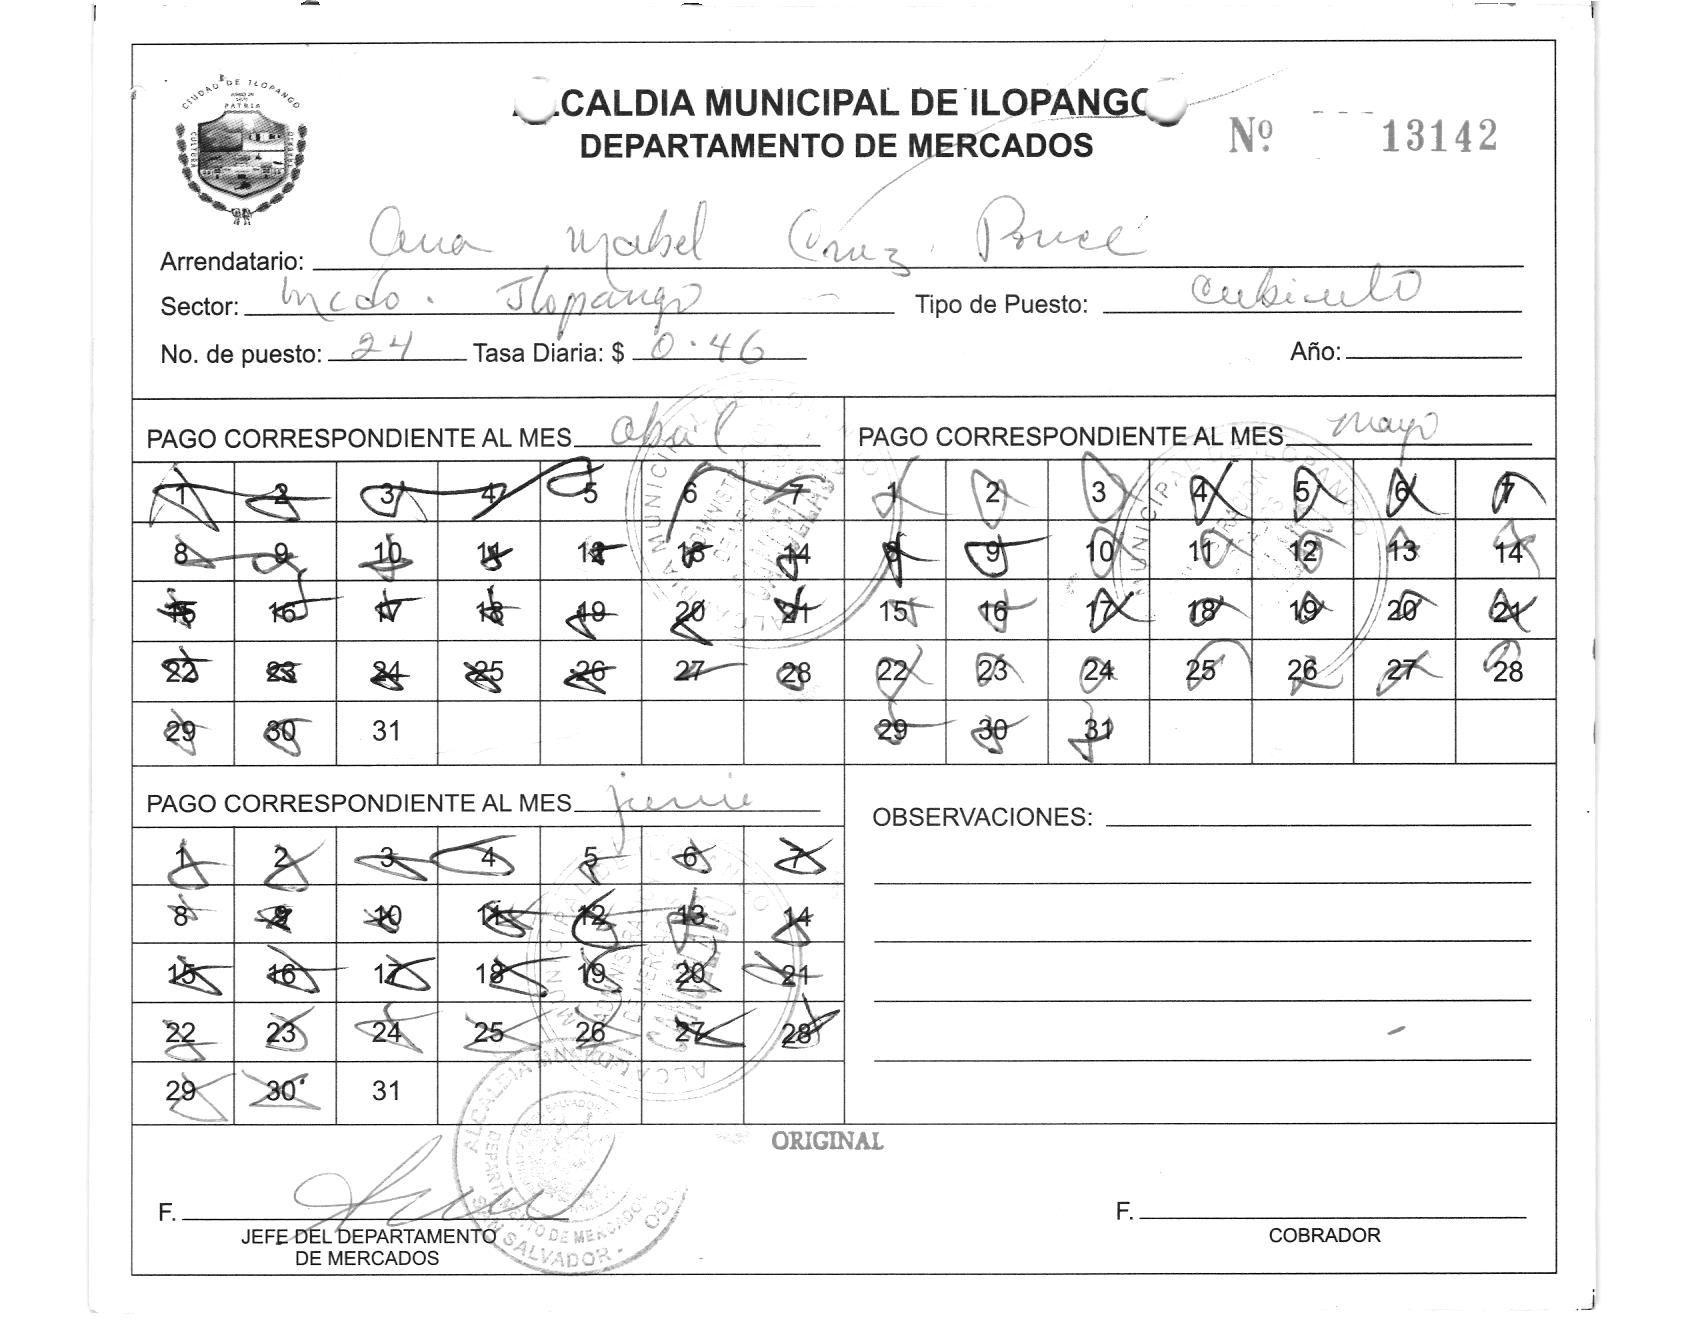 CIUDAD DE ILOPANGO
PATRIA
CULTURA
ALCALDIA MUNICIPAL DE ILOPANGO
DEPARTAMENTO DE MERCADOS
Nº 13142
Arrendatario: Ana Mabel Cruz Ponce
Sector: Mcdo. Ilopango Tipo de Puesto: Cubiculo
No. de puesto: 24 Tasa Diaria: $ 0.46 Año:
PAGO CORRESPONDIENTE AL MES abril
1 2 3 4 5 6 7
8 9 10 11 12 13 14
15 16 17 18 19 20 21
22 23 24 25 26 27 28
29 30 31
PAGO CORRESPONDIENTE AL MES mayo
1 2 3 4 5 6 7
8 9 10 11 12 13 14
15 16 17 18 19 20 21
22 23 24 25 26 27 28
29 30 31
PAGO CORRESPONDIENTE AL MES junio
1 2 3 4 5 6 7
8 9 10 11 12 13 14
15 16 17 18 19 20 21
22 23 24 25 26 27 28
29 30 31
OBSERVACIONES:
ORIGINAL
F.
JEFE DEL DEPARTAMENTO
DE MERCADOS
F.
COBRADOR
ALCALDIA MUNICIPAL DE ILOPANGO
ADMINISTRACION
DE MERCADOS
CANCELADO
DEPARTAMENTO DE MERCADOS
SAN SALVADOR